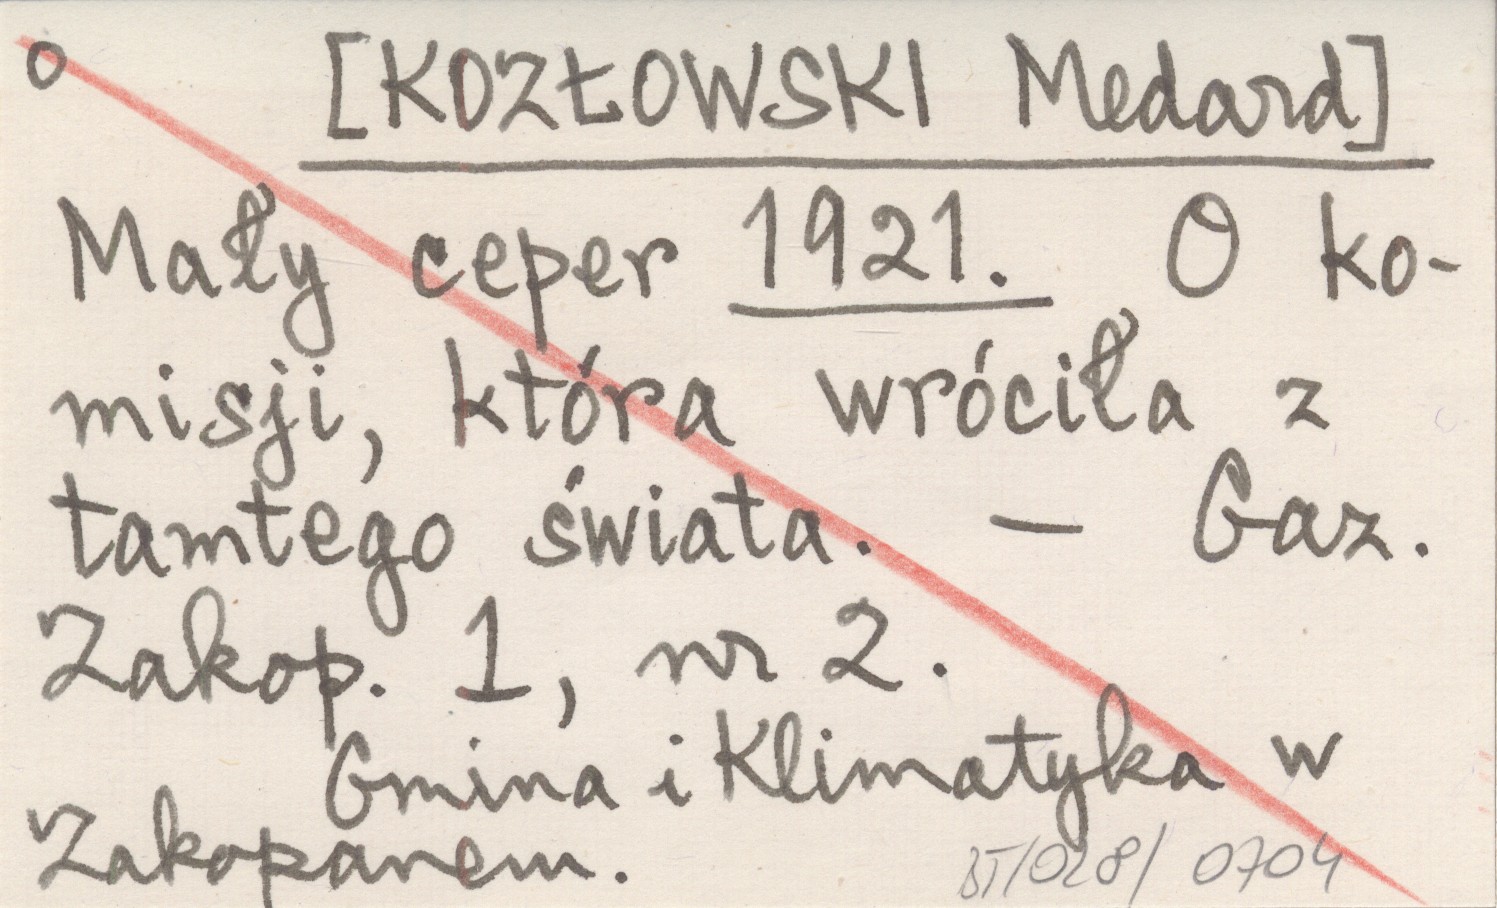 o [KOZŁOWSKI Medard]
Mały ceper 1921. O ko-
misji, która wróciła z
tamtego świata. — Gaz.
Zakop. 1, nr 2.
Gmina i Klimatyka w
Zakopanem.
BT/028/0704